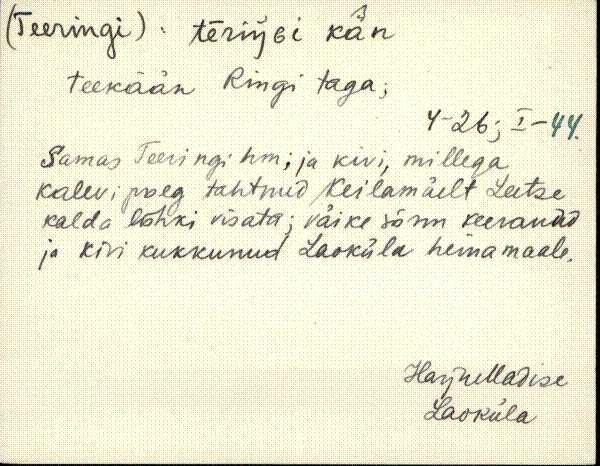 (Teeringi). tēriŋɢi kä̂n
teekään Ringi taga;
4-26; I-44.
Samas Teeringi hm; ja kivi, millega
Kalevipoeg tahtnud Keilamäelt Leetse
kalda lõhki visata; väike sõrm keeranud
ja kivi kukkunud Laoküla heinamaale.
HarjuMadise
Laoküla